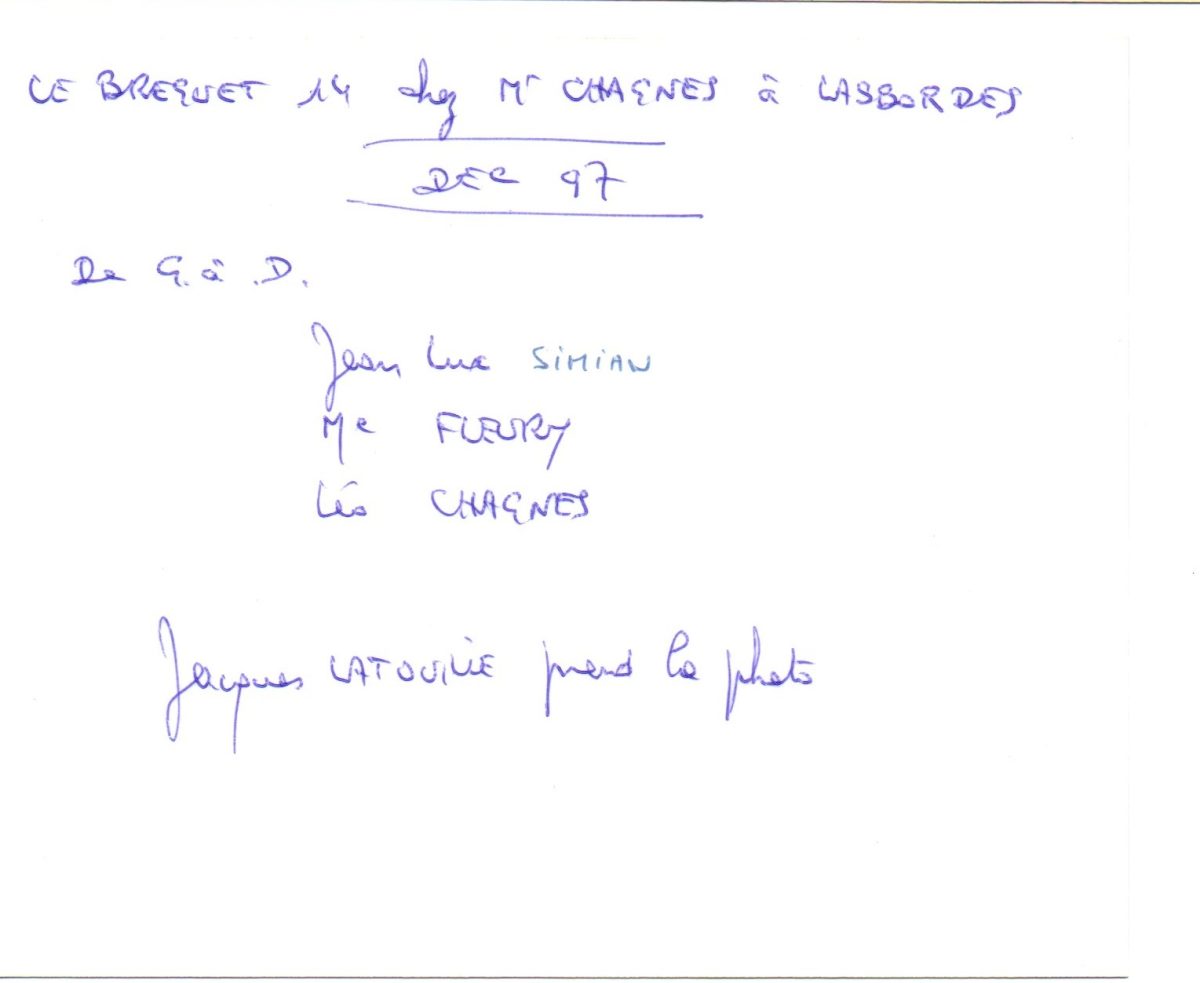 LE BREGUET 14 chez Mr CHAGNES à LASBORDES
DEC 97
De G. à D.
Jean Luc SIMIAN
Mr FLEURY
Léo CHAGNES
Jacques LATOUILLE prend la photo